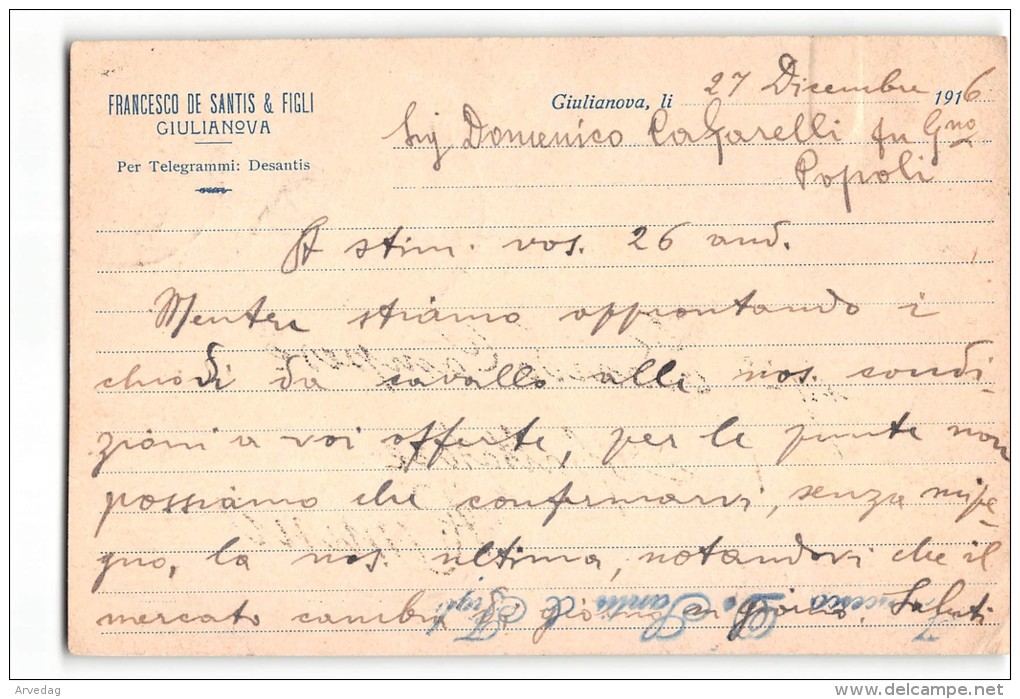 FRANCESCO DE SANTIS & FIGLI
GIULIANOVA
Per Telegrammi: Desantis
Giulianova, li 27 Dicembre 1916
Sig Domenico Cafarelli fu Gno
Popoli
A stim. vos. 26 and.
Mentre stiamo approntando i
chiodi da cavallo alle nos. condi-
zioni a voi offerte, per le punte non
possiamo che confermarvi, senza impe-
gno, la nos. ultima, notandovi che il
mercato cambia di giorno in giorno. Saluti
Francesco De Santis & Figli
Arvedag
delcampe.net